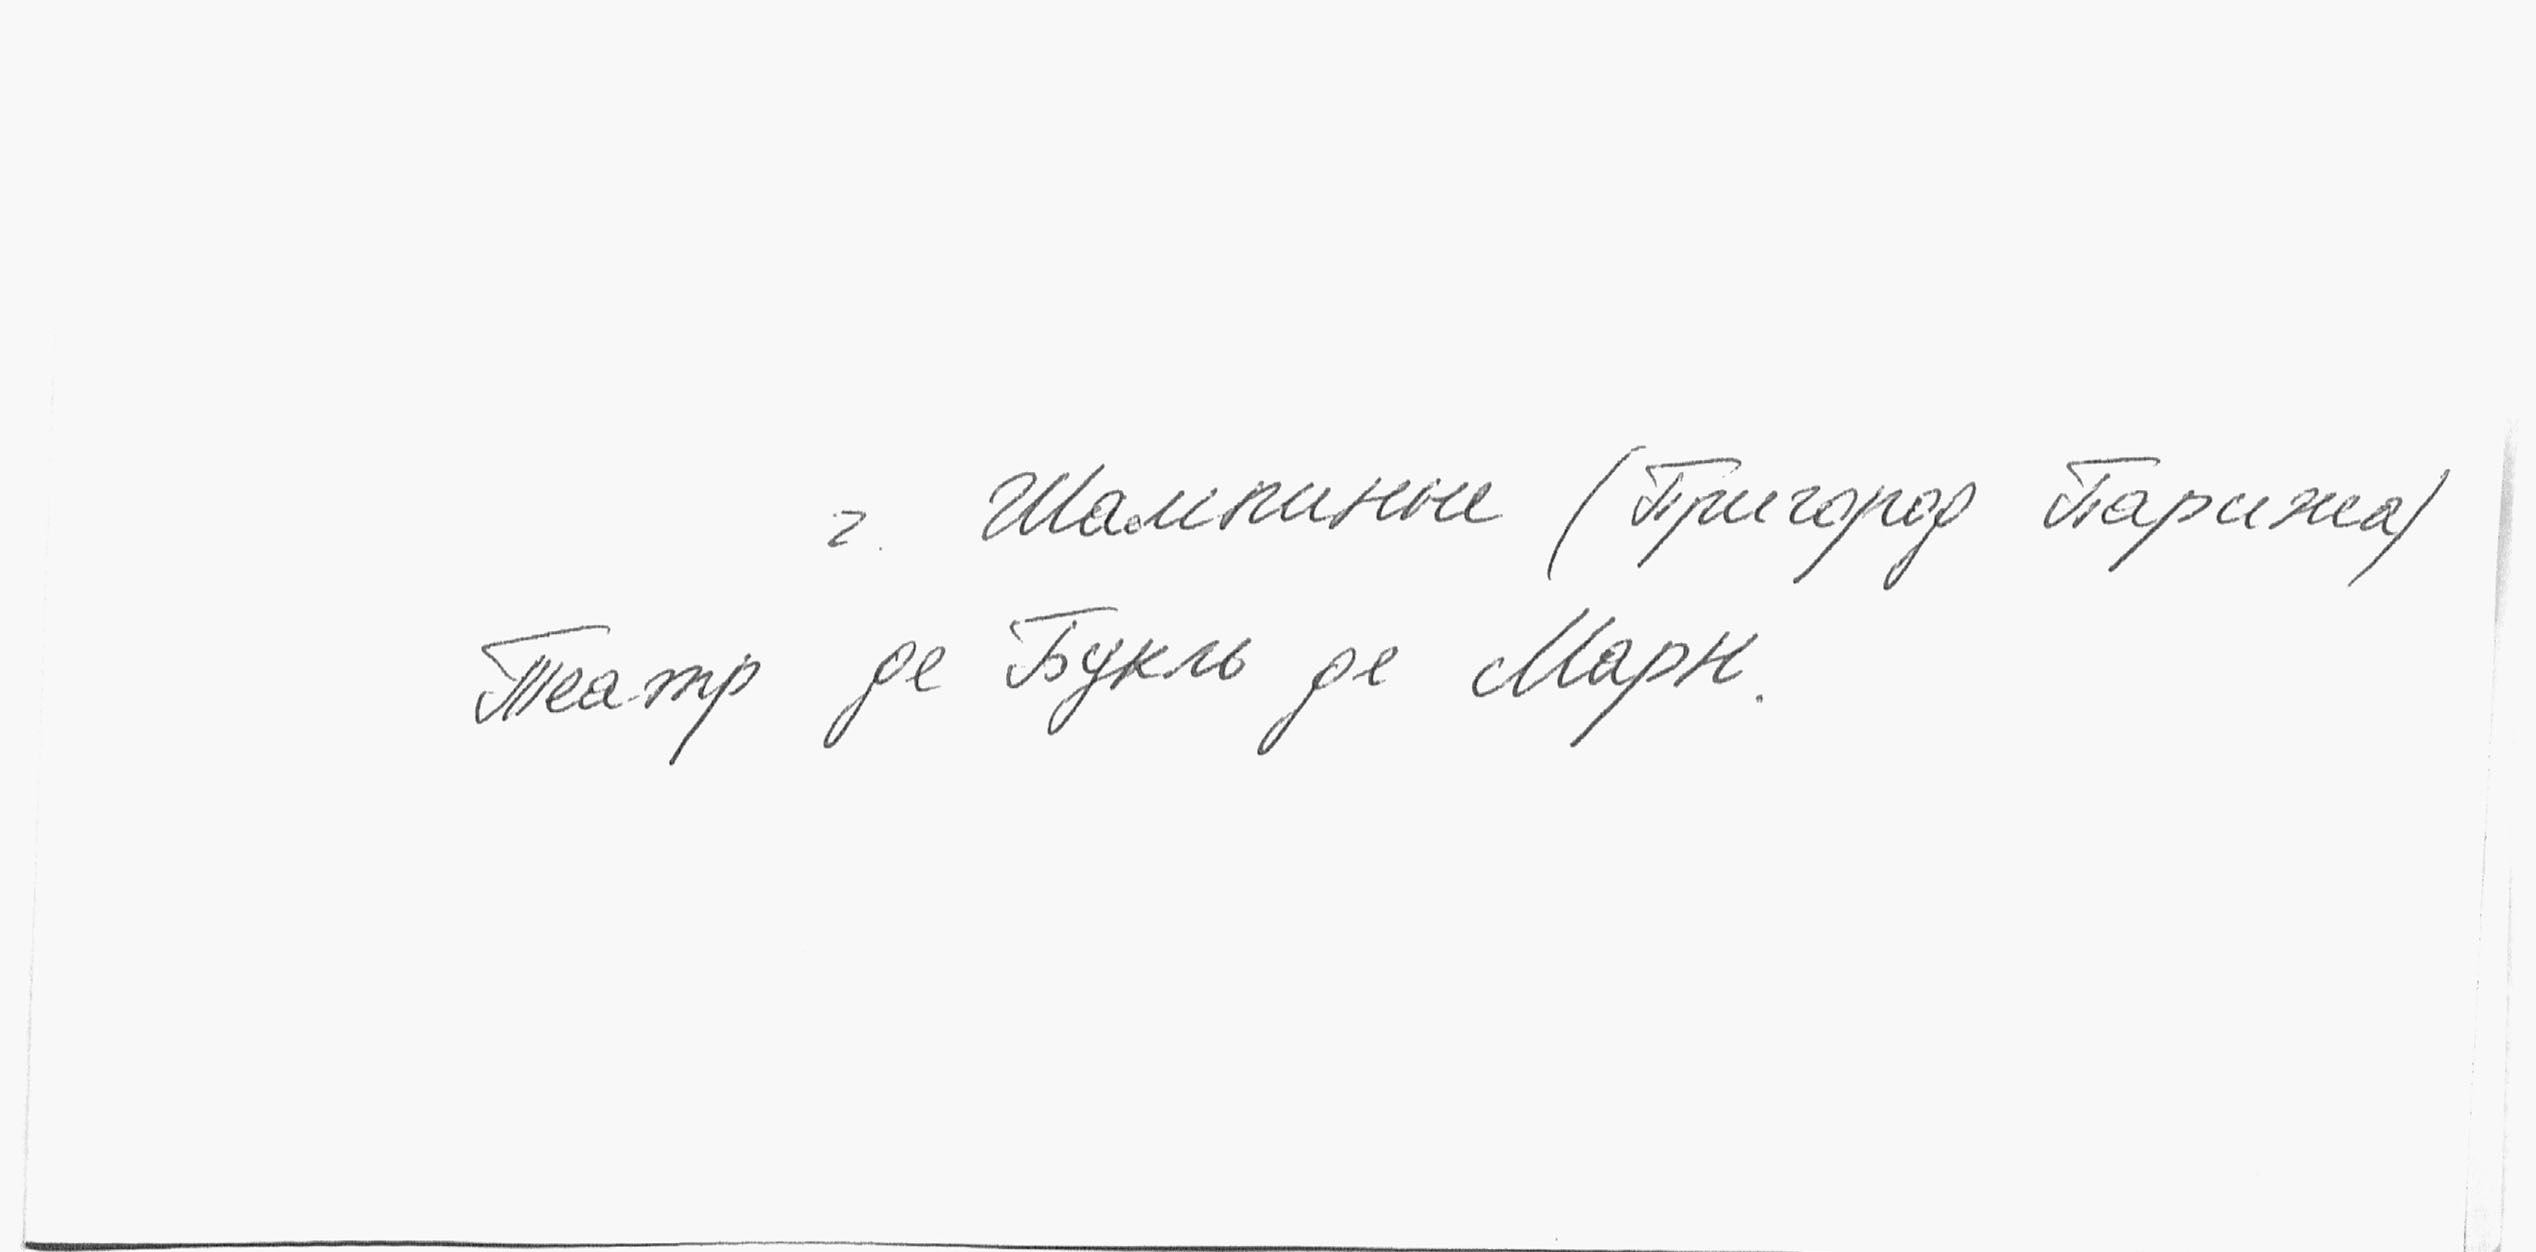 г. Шампиньи (Пригород Парижа)
Театр де Букль де Марн.